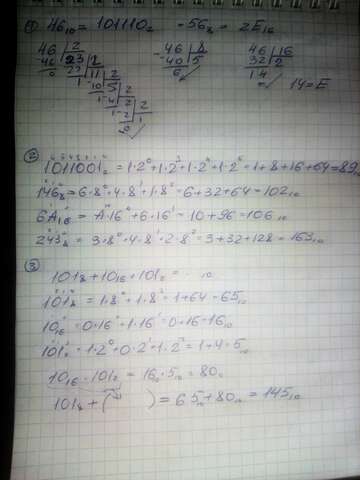 ① 46₁₀ = 101110₂ = 56₈ = 2E₁₆
46 | 2
-46 23 | 2
0 22 11 | 2
1 -10 5 | 2
1 -4 2 | 2
1 -2 1
0
-46 | 8
-40 5
6
46 | 16
32 2
14 14=E
② 1011001₂ = 1·2⁰+1·2³+1·2⁴+1·2⁶ = 1+8+16+64=89
146₈ = 6·8⁰+4·8¹+1·8² = 6+32+64=102₁₀
6A₁₆ = A·16⁰+6·16¹ = 10+96=106₁₀
243₈ = 3·8⁰+4·8¹+2·8² = 3+32+128=163₁₀
③ 101₈+10₁₆·101₂ = ₁₀
101₈ = 1·8⁰+1·8² = 1+64=65₁₀
10₁₆ = 0·16⁰+1·16¹ = 0+16=16₁₀
101₂ = 1·2⁰+0·2¹+1·2² = 1+4=5₁₀
10₁₆·101₂ = 16₁₀·5₁₀ = 80₁₀
101₈+( ) = 65₁₀+80₁₀ = 145₁₀